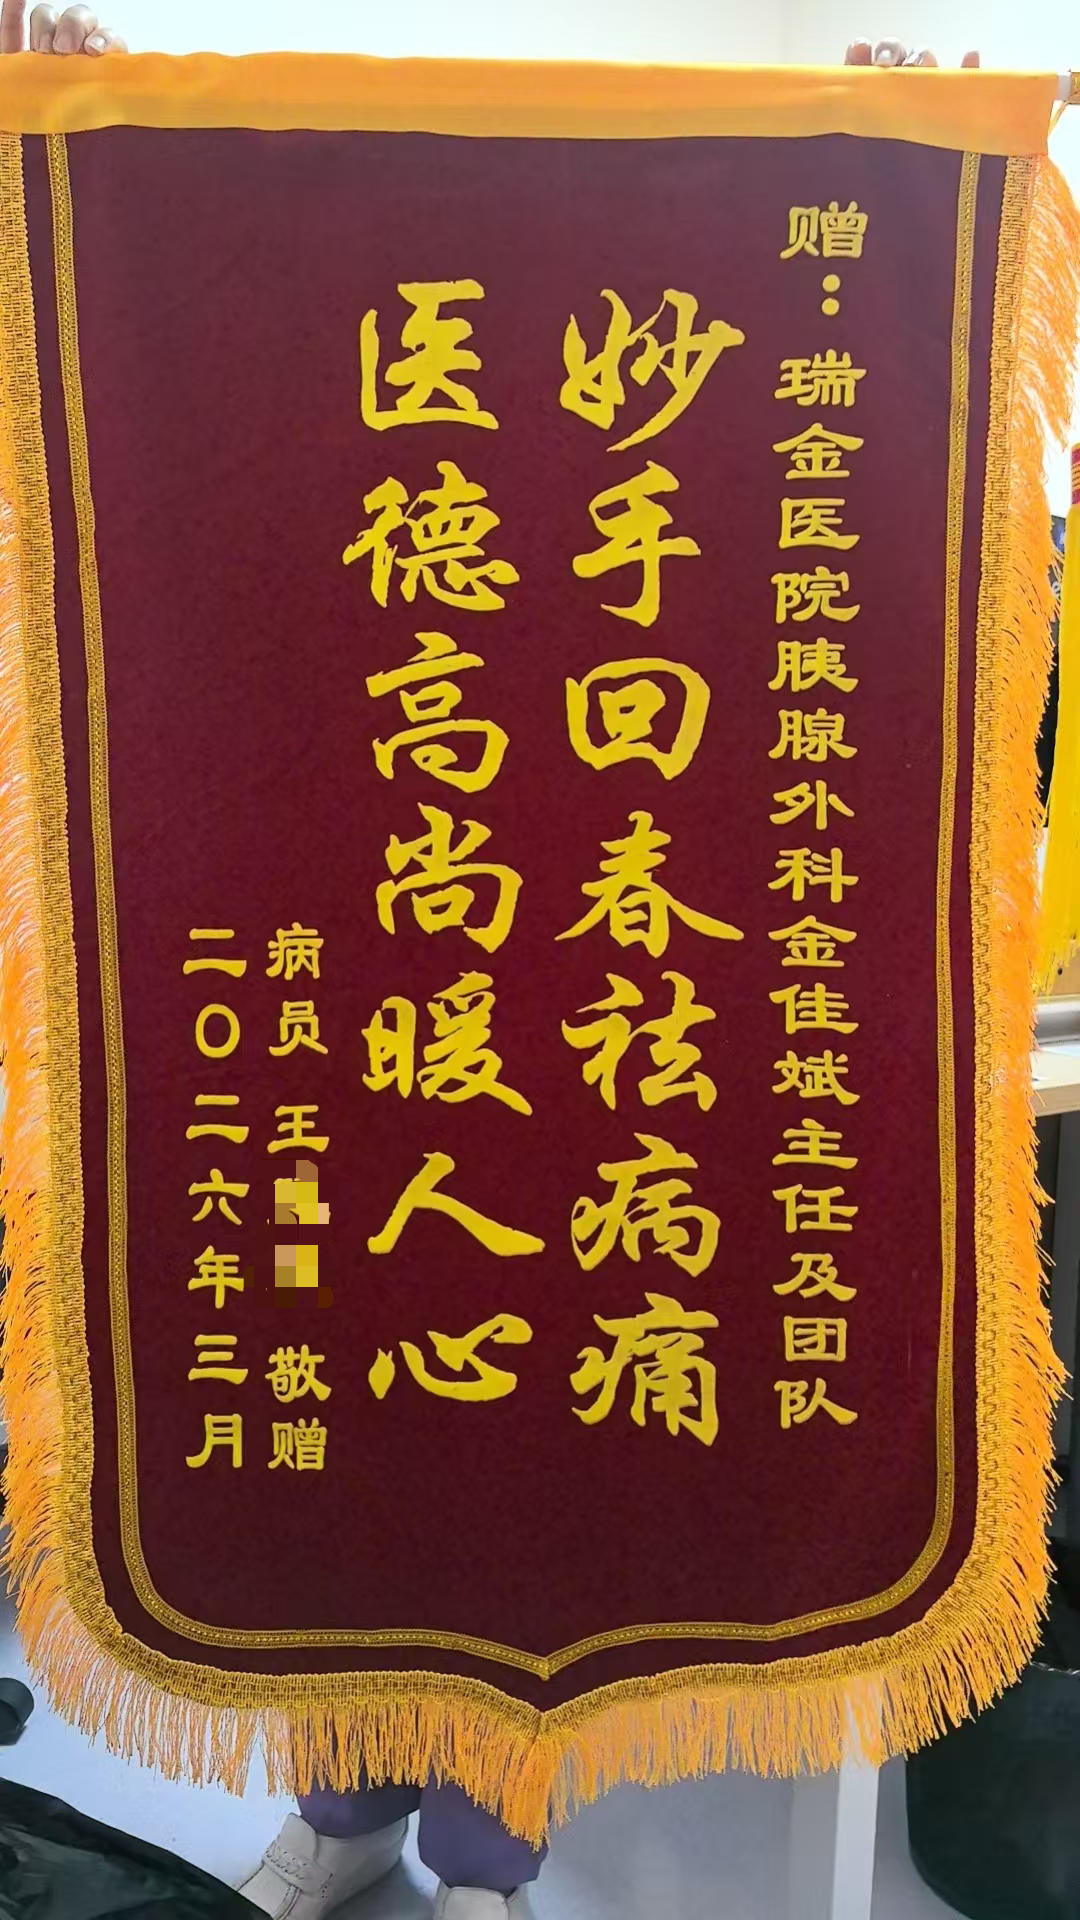 赠：瑞金医院胰腺外科金佳斌主任及团队
妙手回春祛病痛
医德高尚暖人心
病员 王 敬赠
二〇二六年三月